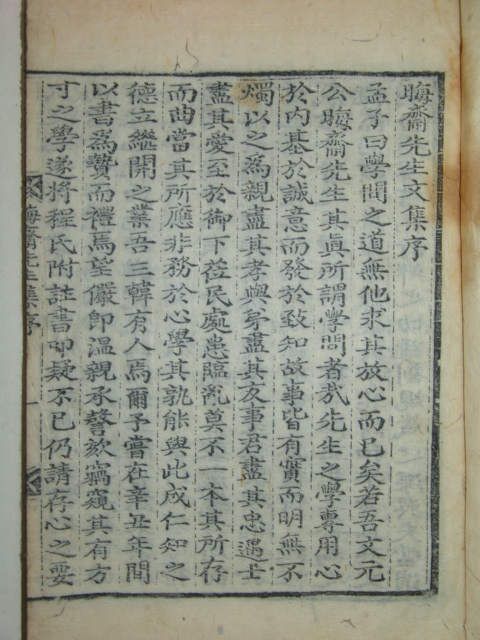 晦齋先生文集序
孟子曰學問之道無他求其放心而已矣若吾文元
公晦齋先生其眞所謂學問者哉先生之學專用心
於內基於誠意而發於致知故事皆有實而明無不
燭以之爲親盡其孝與弟盡其友事君盡其忠遇士
盡其愛至於御下莅民處患臨亂莫不一本其所存
而曲當其所應非務於心學其孰能與此成仁知之
德立繼開之業吾三韓有人焉爾予嘗在辛丑年間
以書爲贄而禮焉望儼卽溫親承謦欬竊窺其有方
寸之學遂將程氏附註書叩疑不已仍請存心之要
晦齋先生集序
一